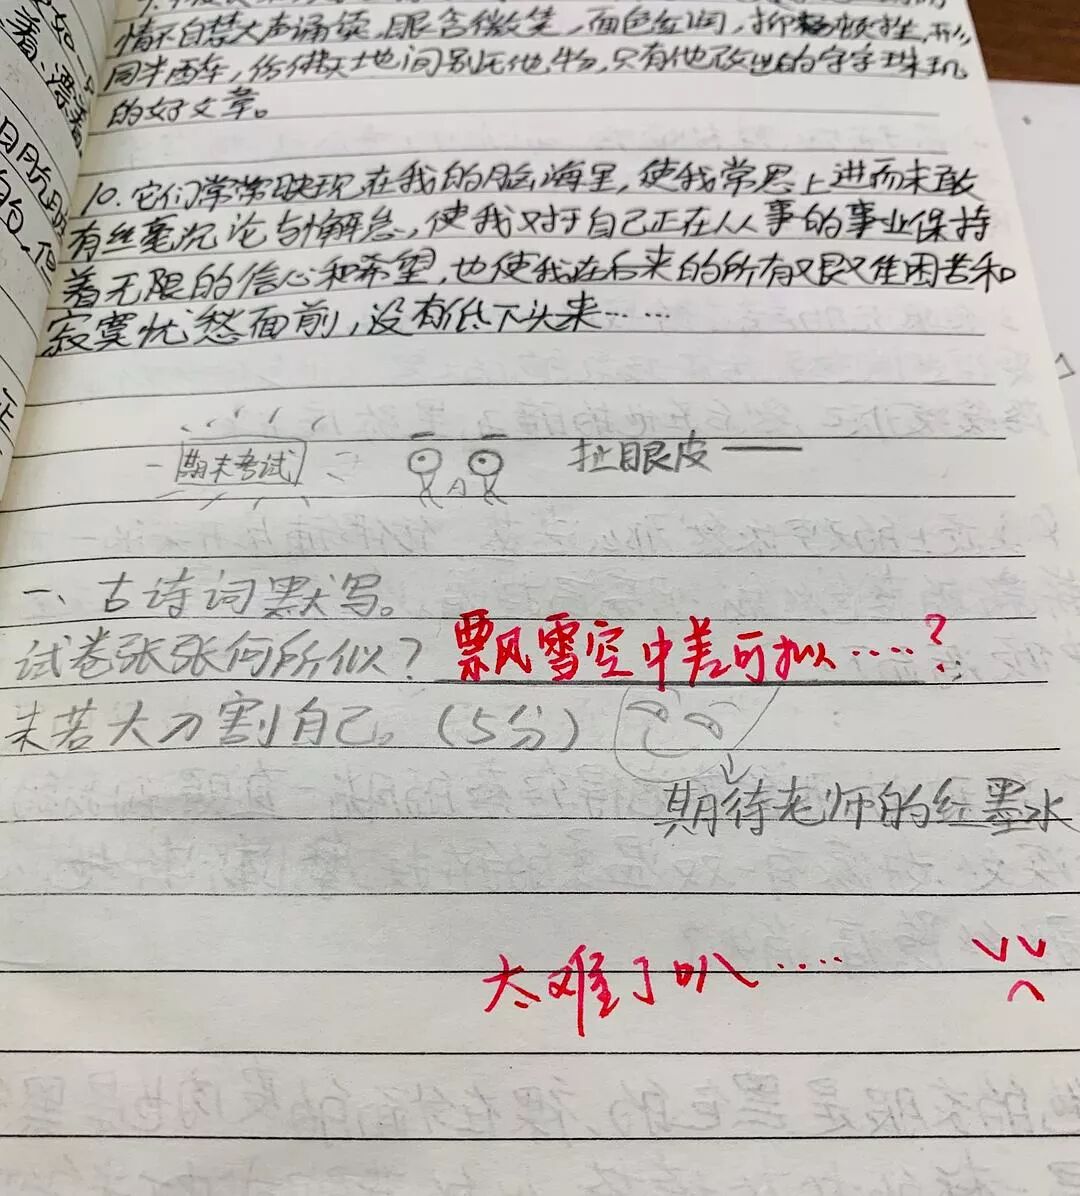 情不自禁大声诵读,眼含微笑,面色红润,抑扬顿挫,
同半两车,仿佛天地间别无他物,只有他改出的字字珠玑
的好文章。
10.它们常常映现在我的脑海里,使我常思上进而未敢
有丝毫沉沦与懈怠,使我对于自己正在从事的事业保持
着无限的信心和希望,也使我在后来的所有艰难困苦和
寂寞忧愁面前,没有低下头来……
期末考试
扯眼皮——
一、古诗词默写。
试卷张张何所似?飘雪空中差可拟……?
未若大刀割自己。(5分)
期待老师的红墨水
太难了叭……